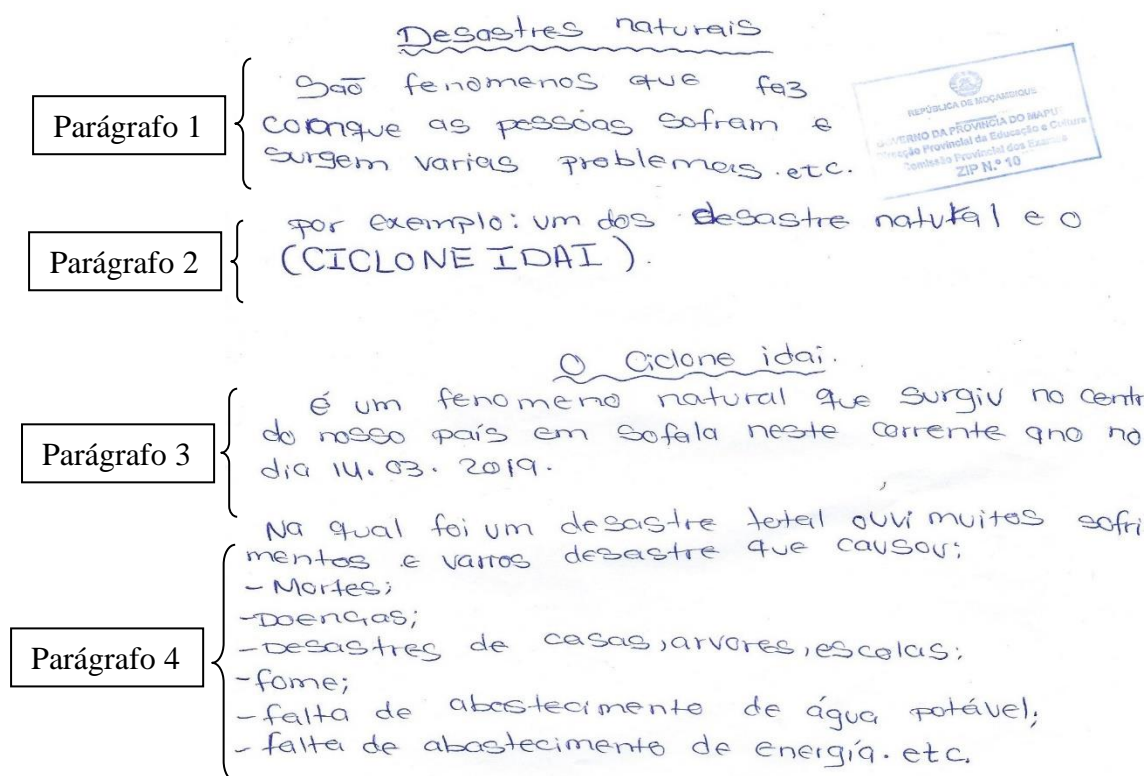 Desastres naturais
Parágrafo 1
São fenomenos que faz
comque as pessóas sofram e
surgem varias problemas.etc.
REPÚBLICA DE MOÇAMBIQUE
GOVERNO DA PROVÍNCIA DO MAPU
Direcção Provincial da Educação e Cultura
Comissão Provincial dos Exames
ZIP N.º 10
Parágrafo 2
por exemplo: um dos desastre natural e o
(CICLONE IDAI).
O Ciclone idai.
Parágrafo 3
é um fenomeno natural que surgiu no centr
do nosso país em sofala neste corrente ano no
dia 14.03.2019.
Parágrafo 4
Na qual foi um desastre total ouvi muitos sofri
mentos e varros desastre que causou;
-Mortes;
-Doenças;
-Desastres de casas,arvores,escolas;
-fome;
-falta de abastecimento de água potável;
-falta de abastecimento de energía.etc.